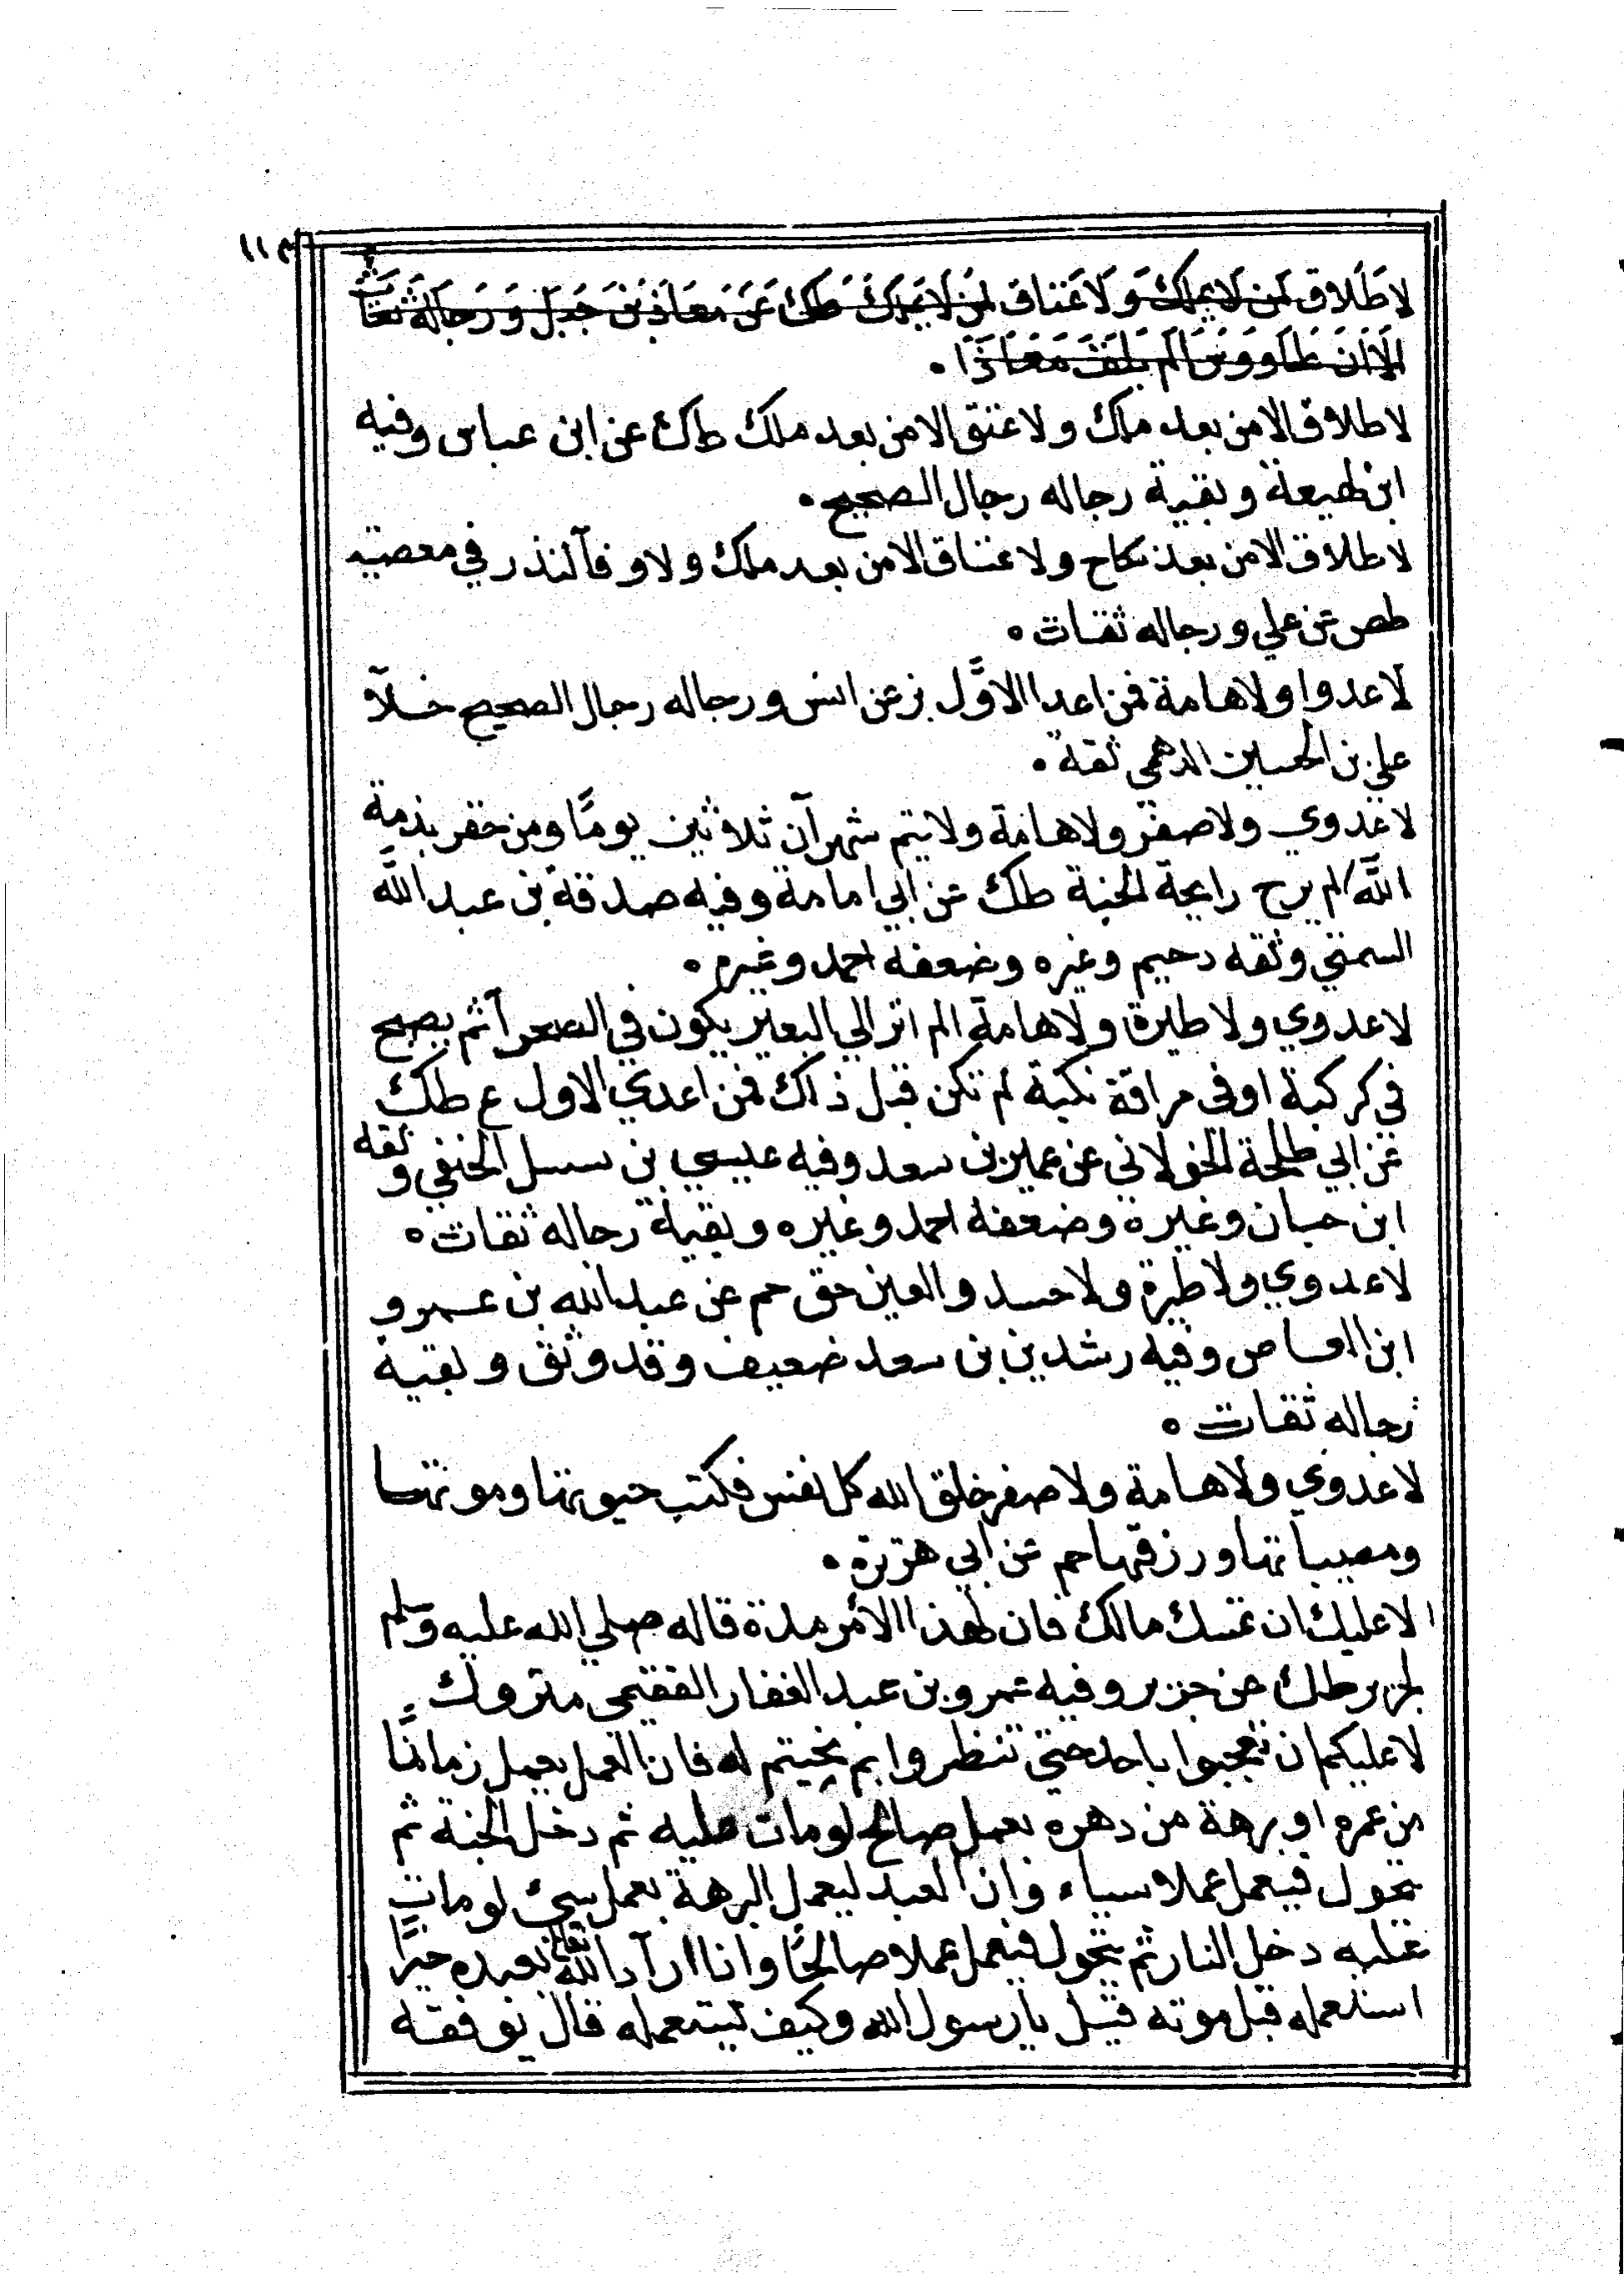 ١١٣
لا طلاق لمن لا يملك ولا عتاق لمن لا يملك طك عن معاذ بن جبل ورجاله ثقات
الا ان طاووسا لم يلق معاذا ه
لا طلاق الا من بعد ملك ولا عتق الا من بعد ملك طك عن ابن عباس وفيه
ابن لهيعة وبقية رجاله رجال الصحيح ه
لا طلاق الا من بعد نكاح ولا عتاق الا من بعد ملك ولا وفآ لنذر في معصيه
طص عن علي ورجاله ثقات ه
لا عدوا ولا هامة فمن اعدا الاوَّل بز عن انس ورجاله رجال الصحيح خلآ
علي بن الحسين الدرهمي ثقة ه
لا عدوي ولا صفر ولا هامة ولا يتم شهرآن ثلاثين يومًا ومن خفر بذمة
اللَّه لم يرح رايحة الجنة طك عن ابي امامة وفيه صدقة بن عبد اللَّه
السمتي وثقه دحيم وغيره وضعفه احمد وغيره ه
لا عدوي ولا طيرة ولا هامة الم تر الي البعير يكون في الصحرآ ثم يصبح
في كركبة او في مراقة نكبة لم تكن قبل ذلك فمن اعدي الاول ع طك
عن ابي طلحة الخولاني عن عمير بن سعد وفيه عيسي بن سسل الحنفي وثقه
ابن حبان وغيره وضعفه احمد وغيره وبقية رجاله ثقات ه
لا عدوي ولا طيرة ولا حسد والعين حق حم عن عبد الله بن عمرو
ابن العاص وفيه رشدين بن سعد ضعيف وقد وثق وبقية
رجاله ثقات ه
لا عدوي ولا هامة ولا صفر خلق الله كل نفس فكتب حيوتها وموتها
ومصيباتها ورزقها حم عن ابي هريرة ه
لا عليك ان تمسك مالك فان لهذا الأمر مدة قاله صلي الله عليه وسلم
لجرير طك عن جرير وفيه عمرو بن عبد الغفار الفقيمي متروك
لا عليكم ان تعجبوا باحد حتي تنظروا بم يختم له فان العمل يعمل زمانًا
من عمره او برهة من دهره بعمل صالح لو مات عليه ثم دخل الجنة ثم
يتحول فيعمل عملا سيياء وان العبد ليعمل البرهة بعمل سيئ لو مات
عليه دخل النار ثم يتحول فيعمل عملا صالحًا واذا ارآد اللَّه تعالي بعبده خيرًا
استعمله قبل موته قيل يا رسول الله وكيف يستعمله قال يوفقه